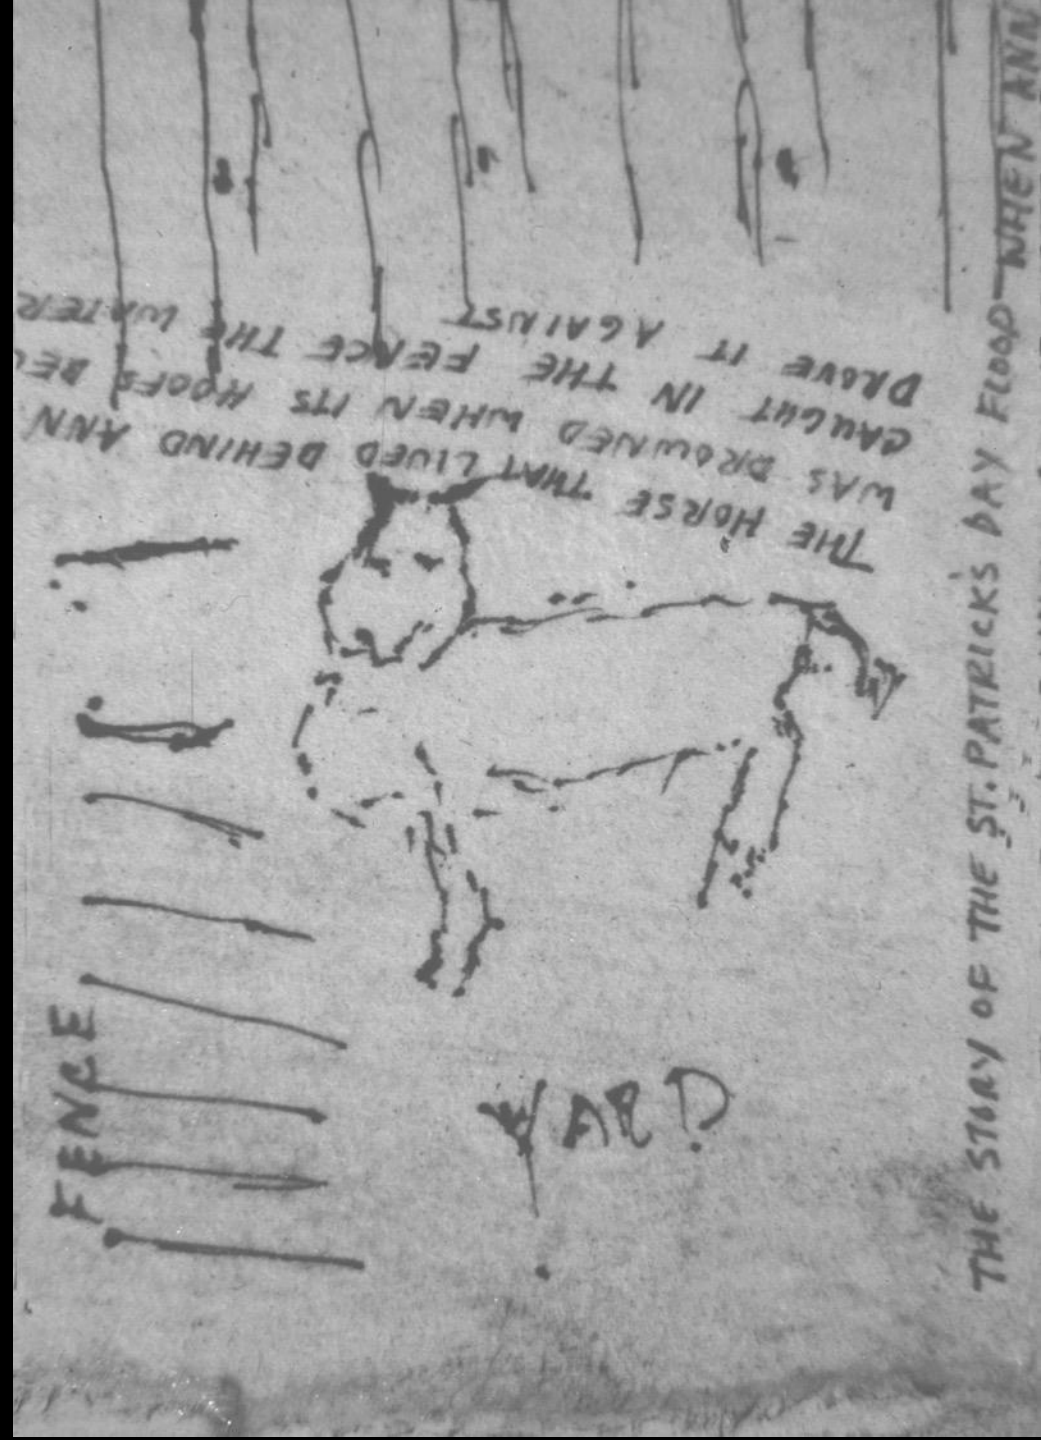 THE STORY OF THE ST. PATRICK'S DAY FLOOD WHEN ANN
THE HORSE THAT LIVED BEHIND ANN
WAS DROWNED WHEN ITS HOOFS BEC
CAUGHT IN THE FENCE THE WATER
DROVE IT AGAINST
FENCE
YARD